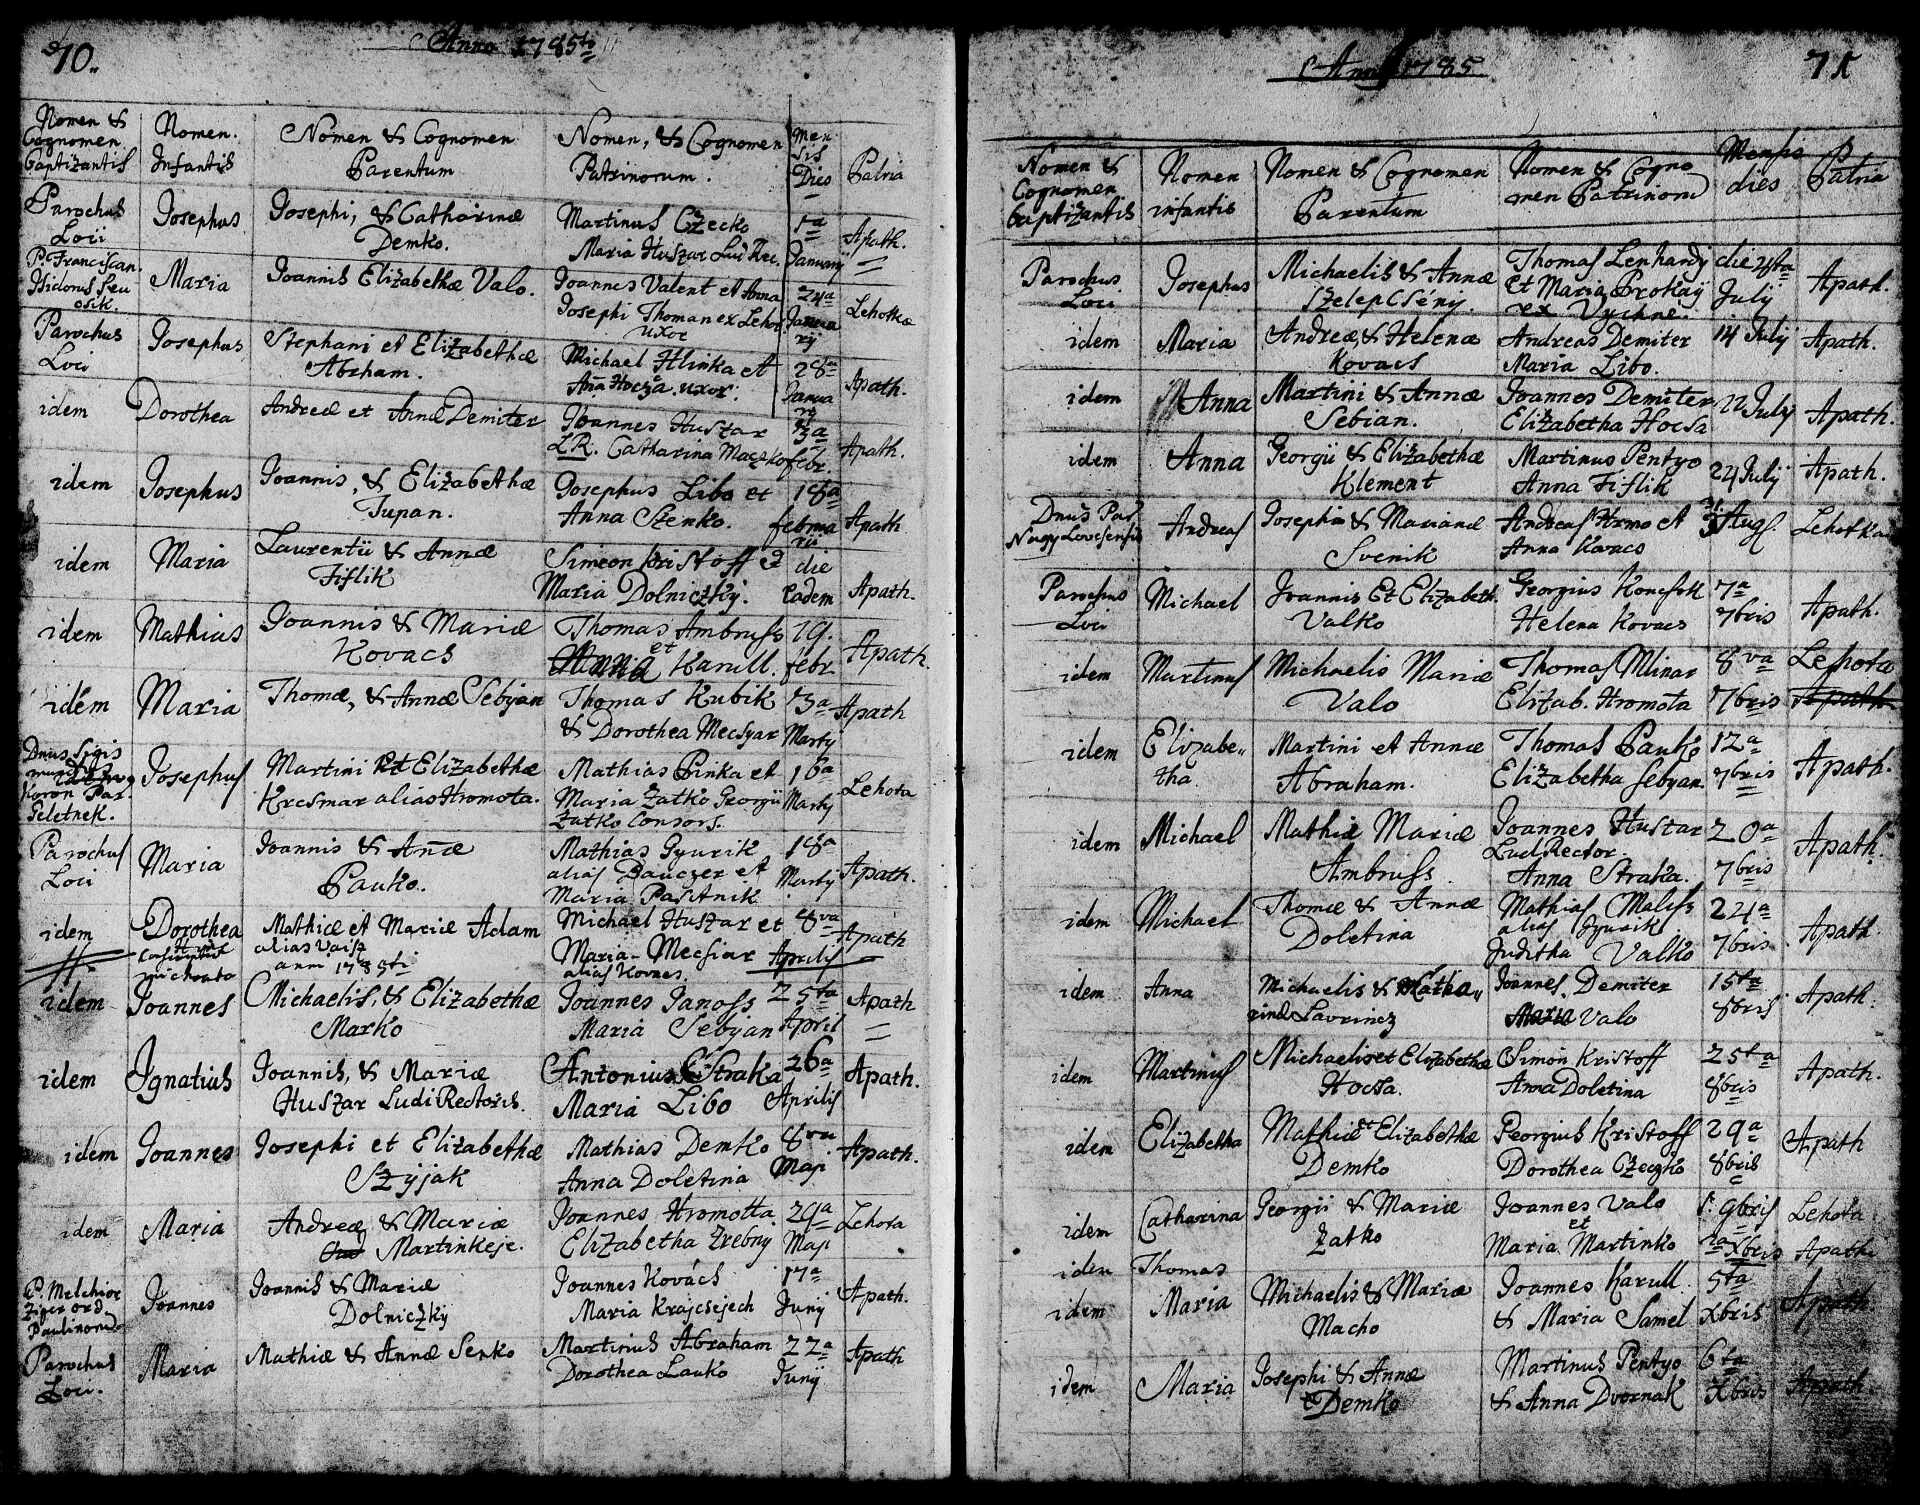 70.
Anno 1785to
Nomen & Cognomen Baptizantis | Nomen. Infantis | Nomen & Cognomen Parentum | Nomen, & Cognomen Patrinorum. | Mensis Dies | Patria
Parochus Loci | Josephus | Josephi, & Catharinæ Demko. | Martinus Czecko Maria Huszar Lud Rec. | 1a Januarij | Apath.
P. Franciscan. Isidorus | Maria | Joannis Elizabethæ Valo. | Joannes Valent et Anna Josephi Thoman ex Lehot. uxor | 24a Januarij | Lehotka
Parochus Loci | Josephus | Stephani et Elizabethæ Abrham. | Michael Hlinka et Aña Hocza uxor. | 28a Januarij | Apath.
idem | Dorothea | Andreæ et Annæ Demiter | Joannes Huszar L.R. Catharina Maczko | 3a febr. | Apath.
idem | Josephus | Joannis, & Elizabethæ Tupan. | Josephus Libo et Anna Szenko. | 18a februarii | Apath
idem | Maria | Laurentii & Annæ Fiflik | Simeon Kristoff & Maria Dolniczky. | die eadem | Apath.
idem | Mathias | Joannis & Mariæ Kovacs | Thomas Ambruss et Anna Karull. | 19. febr. | Apath.
idem | Maria | Thomæ, & Annæ Sebyan | Thomas Kubik & Dorothea Mecsyar | 3a Marty | Apath
Dnus Koron Par. Peletnek. | Josephus | Martini Et Elizabethæ Kresmar alias Hromota. | Mathias Pinka et Maria Zatko Georgii Zatko Consors. | 16a Marty | Lehota
Parochus Loci | Maria | Joannis & Añæ Pauko. | Mathias Gyurik alias Bauczer et Maria Pastnik | 18a Marty | Apath.
idem | Dorothea | Mathiæ et Mariæ Adam alias Vaiss anni 1785ti | Michael Huszar et Maria Mecsiar alias Kovacs. | 8va Aprilis | Apath
idem | Joannes | Michaelis, & Elizabethæ Marko | Joannes Janoss Maria Sebyan | 25ta April | Apath
idem | Ignatius | Joannis, & Mariæ Huszar Ludi Rectoris. | Antonius Straka Maria Libo | 26a Aprilis | Apath.
idem | Joannes | Josephi et Elizabethæ Szyjak | Mathias Demko Anna Doletina | 8va Maji | Apath.
idem | Maria | Andreæ, & Mariæ Martinkeje. | Joannes Hromotta Elizabetha Zrebny | 29a Maji | Lehota
P. Melchior Ziger ord. Paulinorum | Joannes | Joannis & Mariæ Dolniczky | Joannes Kovács Maria Krajcsejech | 17a Junij | Apath.
Parochus Loci. | Maria | Mathiæ & Annæ Senko | Martinus Abraham Dorothea Lauko | 22a Junij | Apath
Anno 1785
71
Nomen & Cognomen Baptizantis | Nomen infantis | Nomen & Cognomen Parentum | Nomen & Cognomen Patrinorum | Mensis dies | Patria
Parochus Loci | Josephus | Michaelis & Annæ Szelepcseny. | Thomas Lenhardy Et Maria Prokay ex Vychne. | die 4ta July | Apath.
idem | Maria | Andreæ & Helenæ Kovacs | Andreas Demiter Maria Libo. | 14 Julij | Apath.
idem | Anna | Martini & Annæ Sebian. | Joannes Demiter Elizabetha Hocsa | 22 July | Apath.
idem | Anna | Georgii & Elizabethæ Klement | Martinus Pentyo Anna Fiflik | 24 Julij | Apath.
Dnus Par. | Andreas | Josephi & Marianæ Svenik | Andreas Hrmo et Anna Kovacs | Aug. | Lehotka
Parochus Loci | Michael | Joannis Et Elizabeth. Valko | Georgius Helena Kovacs | 7a 7bris | Apath.
idem | Martinus | Michaelis Mariæ Valo | Thomas Mlinar Elizab. Hromota | 8va 7bris | Lehota Apath
idem | Elizabetha. | Martini et Annæ Abraham. | Thomas Pauko Elizabetha Sebyan. | 12a 7bris | Apath.
idem | Michael | Mathiæ Mariæ Ambruss. | Joannes Huszar Lud Rector. Anna Straka. | 20a 7bris | Apath.
idem | Michael | Thomæ & Annæ Doletina | Mathias Maliss alias Gyurik Juditha Valko | 24a 7bris | Apath.
idem | Anna | Michaelis & Katharinæ Lavrinez | Joannes Demiter Maria Valo | 15ta 8bris | Apath.
idem | Martinus | Michaelis et Elizabethæ Hocsa. | Simon Kristoff Anna Doletina | 25ta 8bris | Apath.
idem | Elizabetha | Mathiæ et Elizabethæ Demko | Georgius Kristoff Dorothea Czeczko | 29a 8bris | Apath
idem | Catharina | Georgii & Mariæ Zatko | Joannes Valo et Maria Martinko | 9bris | Lehota
idem | Thomas | 1a Xbris | Apath
idem | Maria | Michaelis & Mariæ Macho | Joannes Karull. & Maria Samel | 5ta Xbris | Apath
idem | Maria | Josephi & Annæ Demko | Martinus Pentyo & Anna Dvornak | 6ta Xbris | Apath